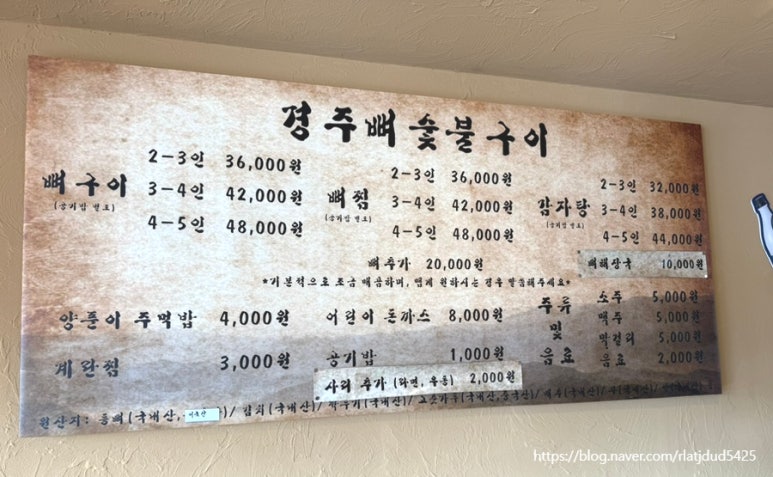 경주뼈숯불구이
뼈구이
(공기밥 별도)
2-3인 36,000원
3-4인 42,000원
4-5인 48,000원
뼈찜
(공기밥 별도)
2-3인 36,000원
3-4인 42,000원
4-5인 48,000원
감자탕
(공기밥 별도)
2-3인 32,000원
3-4인 38,000원
4-5인 44,000원
뼈추가 20,000원
뼈해장국 10,000원
*기본적으로 조금 매콤하며, 맵게 원하시는 경우 말씀해주세요*
양푼이 주먹밥 4,000원
계란찜 3,000원
어린이 돈까스 8,000원
공기밥 1,000원
사리 추가 (라면, 우동) 2,000원
주류 및 음료
소주 5,000원
맥주 5,000원
막걸리 5,000원
음료 2,000원
원산지: 통뼈(국내산, / 김치(국내산)/ 깍두기(국내산)/ 고춧가루(국내산,중국산)/ 배추(국내산)/
https://blog.naver.com/rlatjdud5425